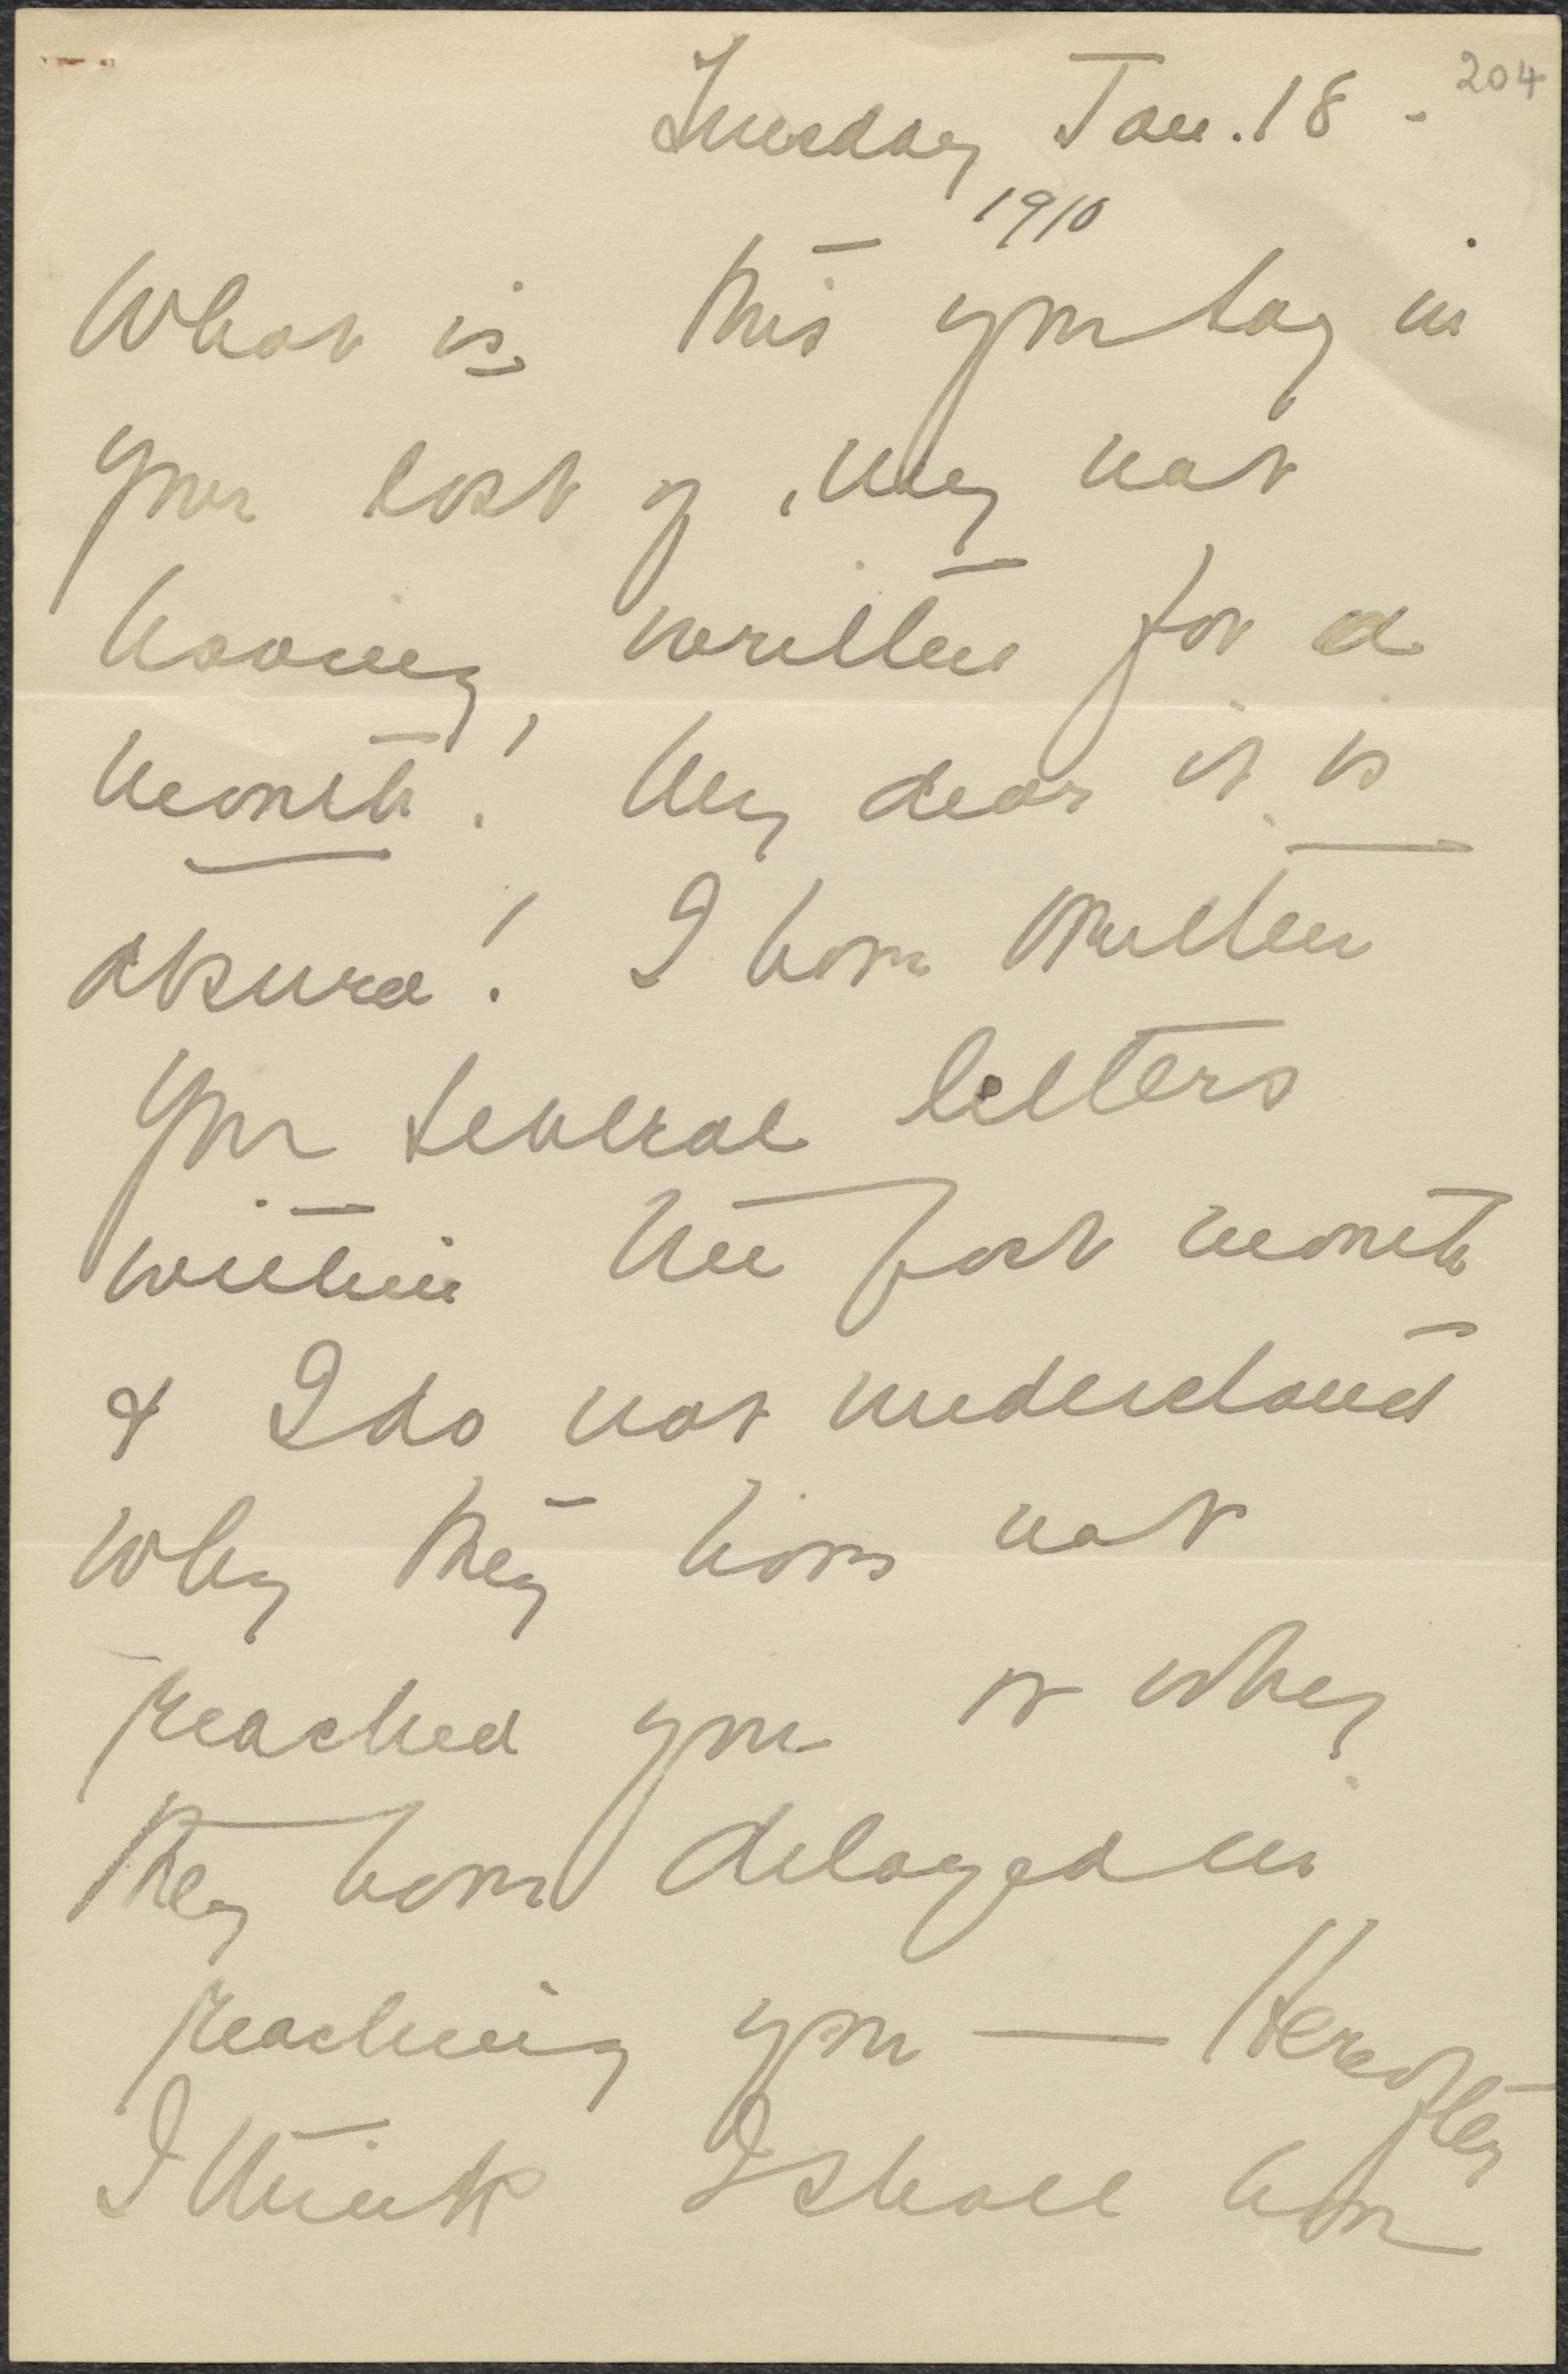 204
Tuesday Jan. 18 -
1910
What is this you say in
your last of my not
having written for a
month! My dear it is
absurd! I have written
you several letters
within the past month
& I do not understand
why they have not
reached you or why
they have delayed in
reaching you — Hereafter
I think I shall have